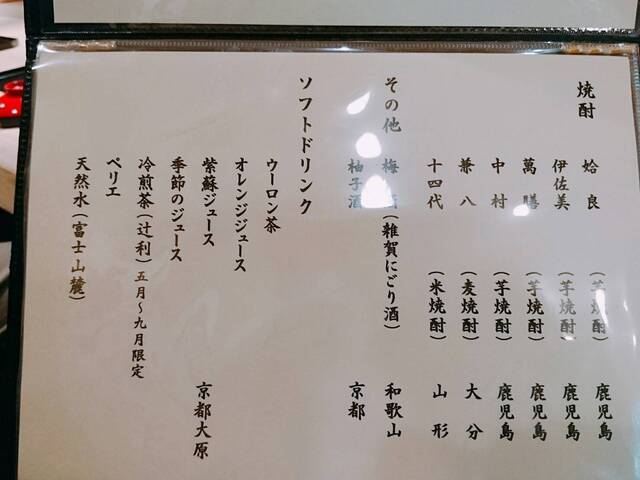 焼酎
姶良 (芋焼酎) 鹿児島
伊佐美 (芋焼酎) 鹿児島
萬膳 (芋焼酎) 鹿児島
中村 (芋焼酎) 鹿児島
兼八 (麦焼酎) 大分
十四代 (米焼酎) 山形
その他
梅酒 (雑賀にごり酒) 和歌山
柚子酒 京都
ソフトドリンク
ウーロン茶
オレンジジュース
紫蘇ジュース 京都大原
季節のジュース
冷煎茶 (辻利) 五月〜九月限定
ペリエ
天然水 (富士山麓)